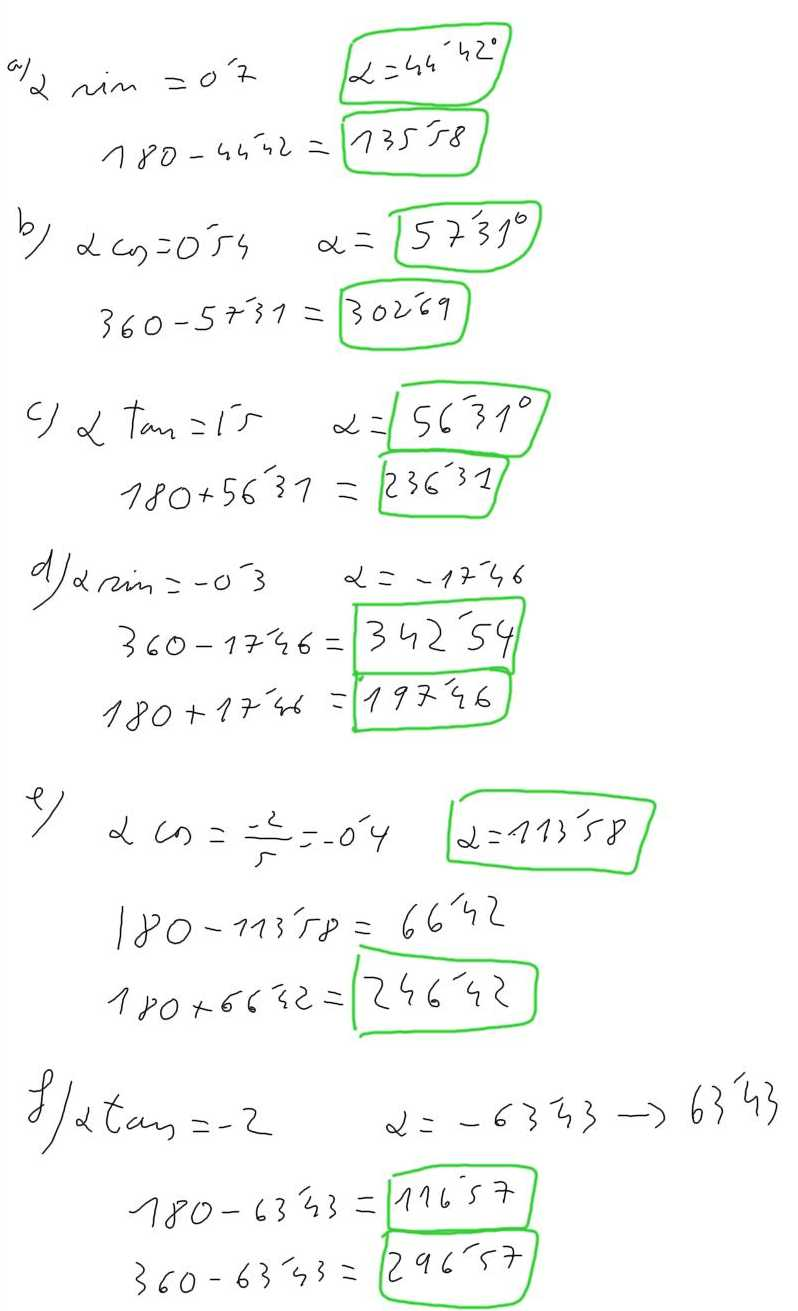 a) α sin = 0´7 α = 44´42°
180 - 44´42 = 135´58
b) α cos = 0´54 α = 57´31°
360 - 57´31 = 302´69
c) α tan = 1´5 α = 56´31°
180 + 56´31 = 236´31
d) α sin = -0´3 α = -17´46
360 - 17´46 = 342´54
180 + 17´46 = 197´46
e) α cos = -2/5 = -0´4 α = 113´58
180 - 113´58 = 66´42
180 + 66´42 = 246´42
f) α tan = -2 α = -63´43 → 63´43
180 - 63´43 = 116´57
360 - 63´43 = 296´57